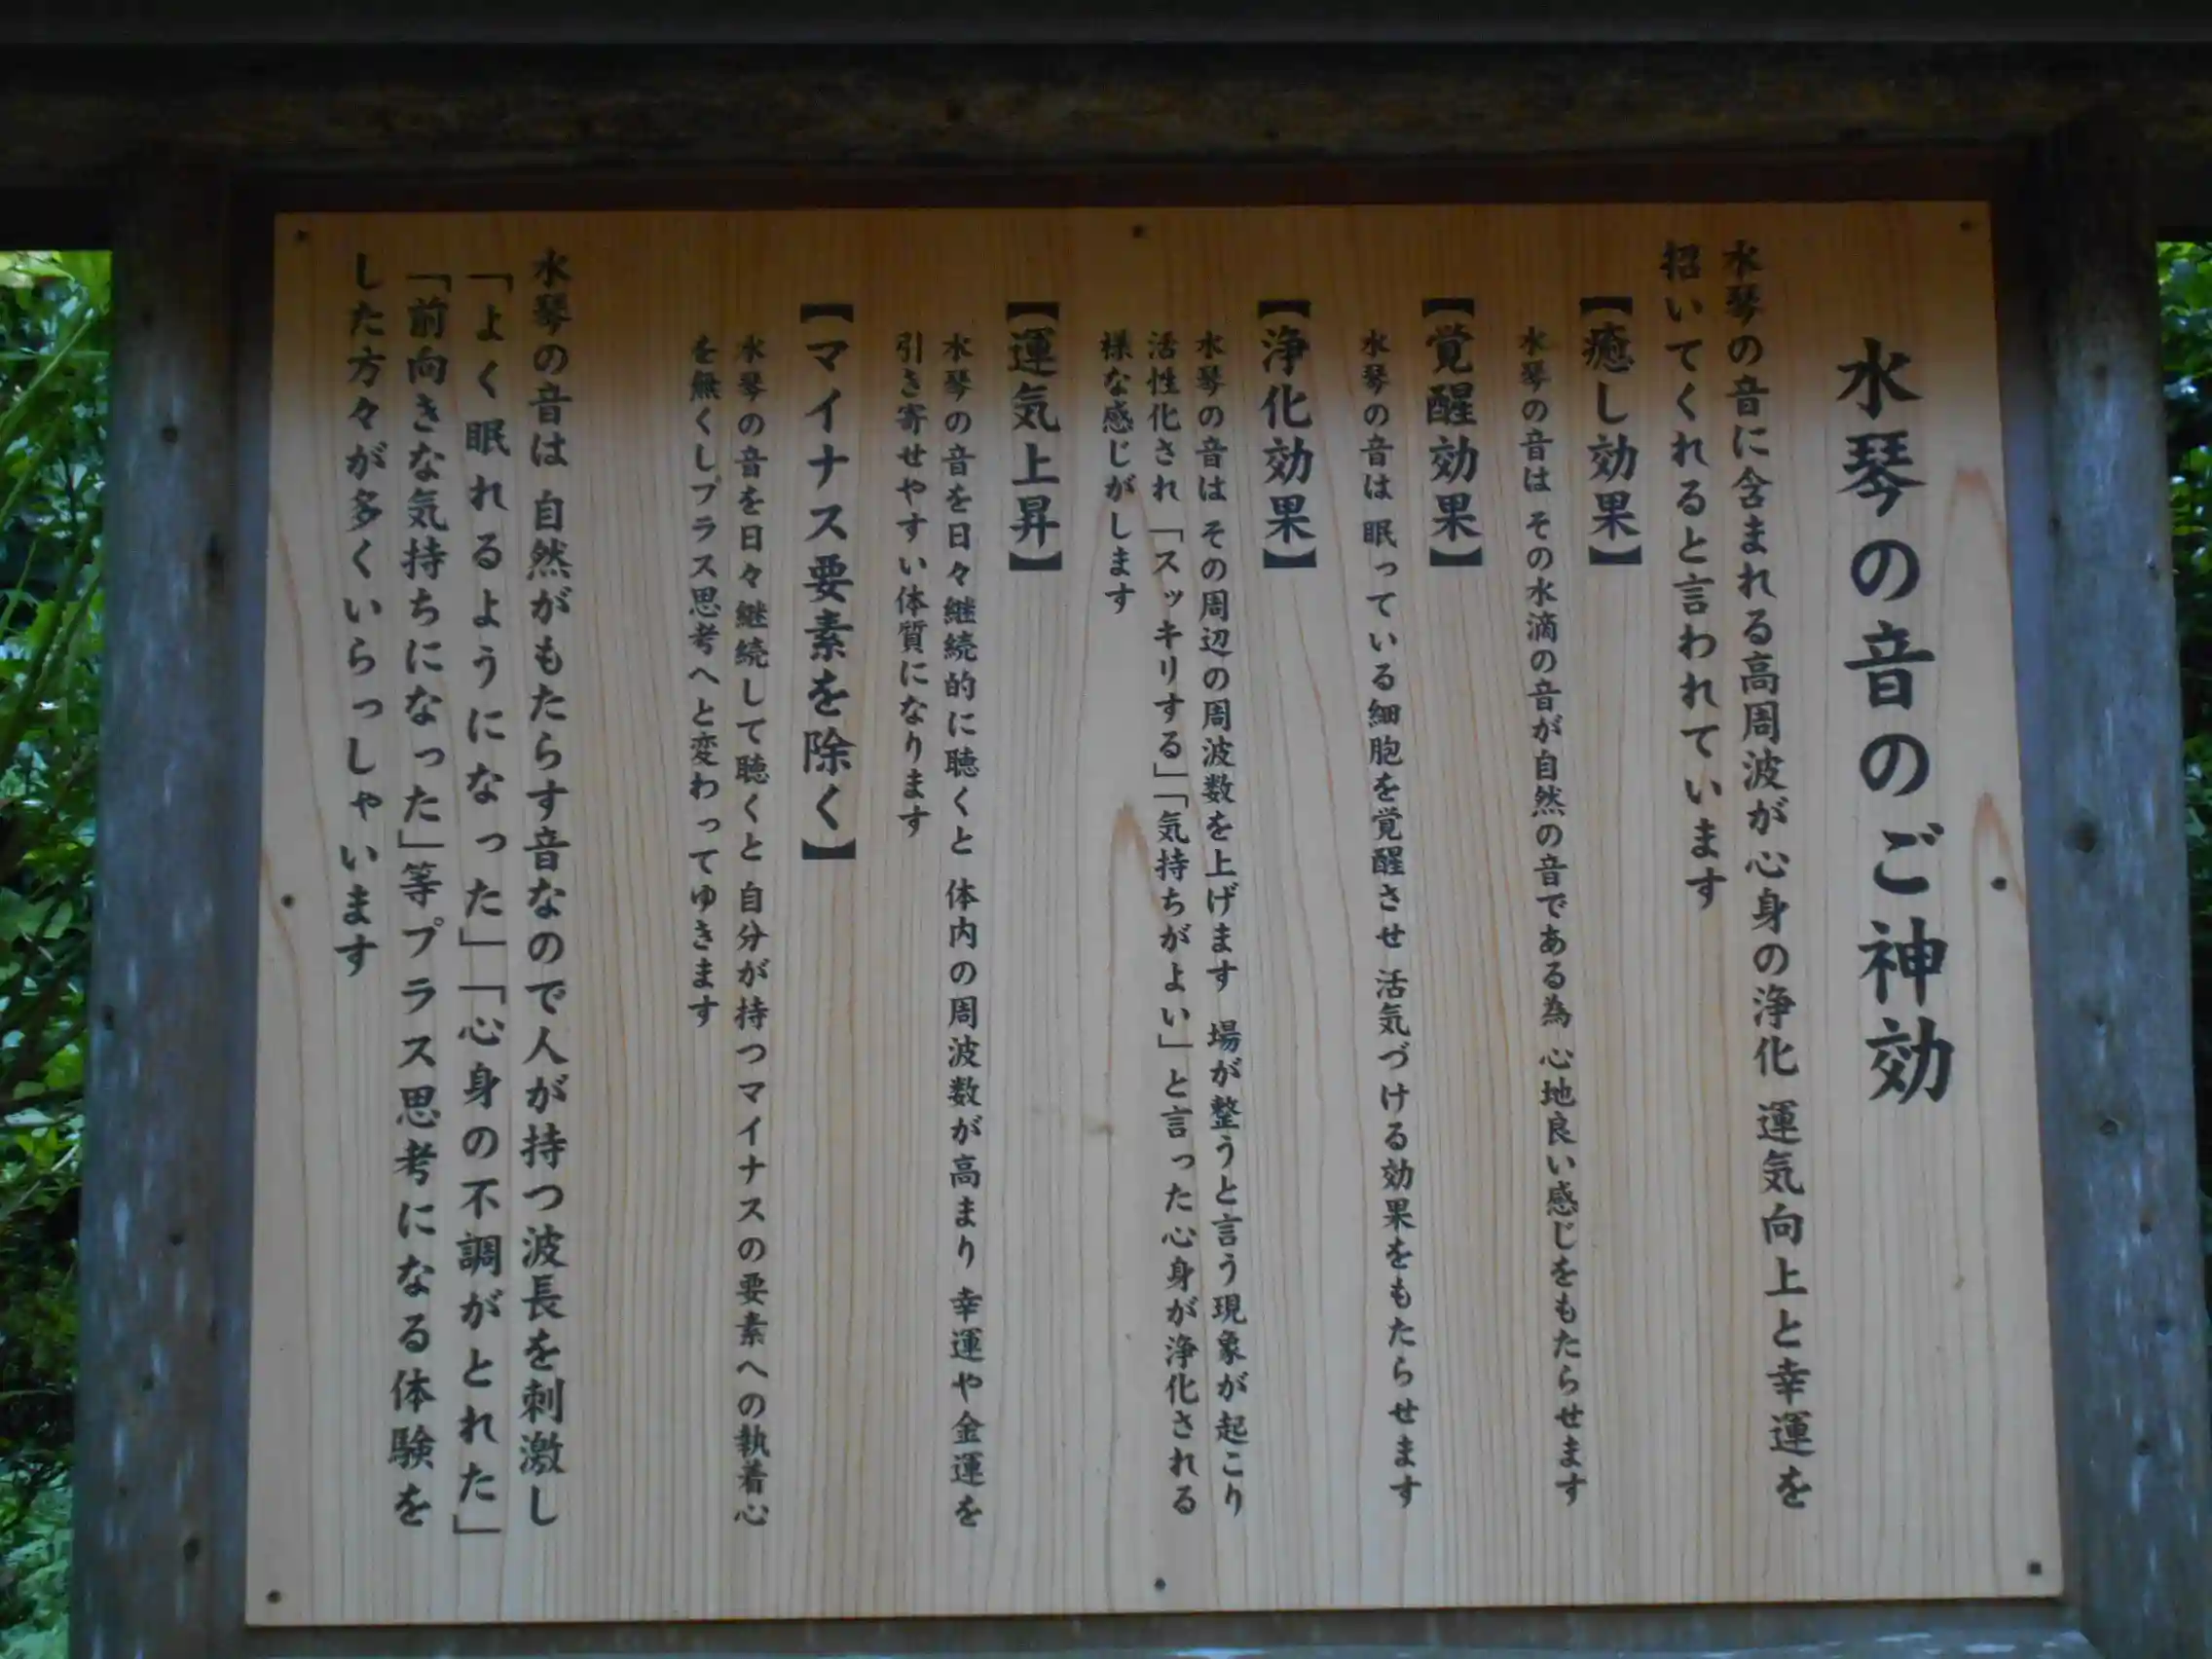 水琴の音のご神効
水琴の音に含まれる高周波が心身の浄化 運気向上と幸運を
招いてくれると言われています
【癒し効果】
水琴の音は その水滴の音が自然の音である為 心地良い感じをもたらせます
【覚醒効果】
水琴の音は 眠っている細胞を覚醒させ 活気づける効果をもたらせます
【浄化効果】
水琴の音は その周辺の周波数を上げます 場が整うと言う現象が起こり
活性化され「スッキリする」「気持ちがよい」と言った心身が浄化される
様な感じがします
【運気上昇】
水琴の音を日々継続的に聴くと 体内の周波数が高まり 幸運や金運を
引き寄せやすい体質になります
【マイナス要素を除く】
水琴の音を日々継続して聴くと 自分が持つマイナスの要素への執着心
を無くしプラス思考へと変わってゆきます
水琴の音は 自然がもたらす音なので人が持つ波長を刺激し
「よく眠れるようになった」「心身の不調がとれた」
「前向きな気持ちになった」等プラス思考になる体験を
した方々が多くいらっしゃいます